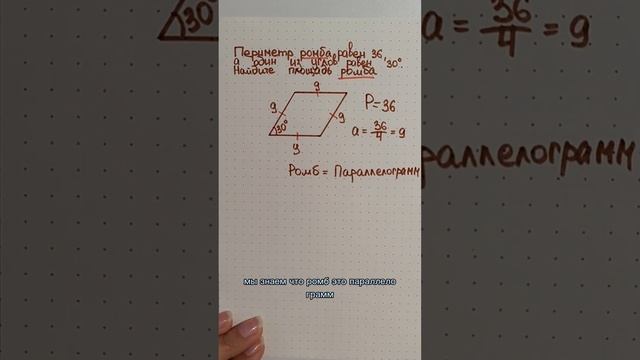 Периметр ромба равен 36,
а один из углов равен 30°.
Найдите площадь ромба
9
9
9
30°
9
P=36
a = 36/4 = 9
Ромб = Параллелограмм
мы знаем что ромб это параллело
грамм
30°
a = 36/4 = 9
араллелограмм